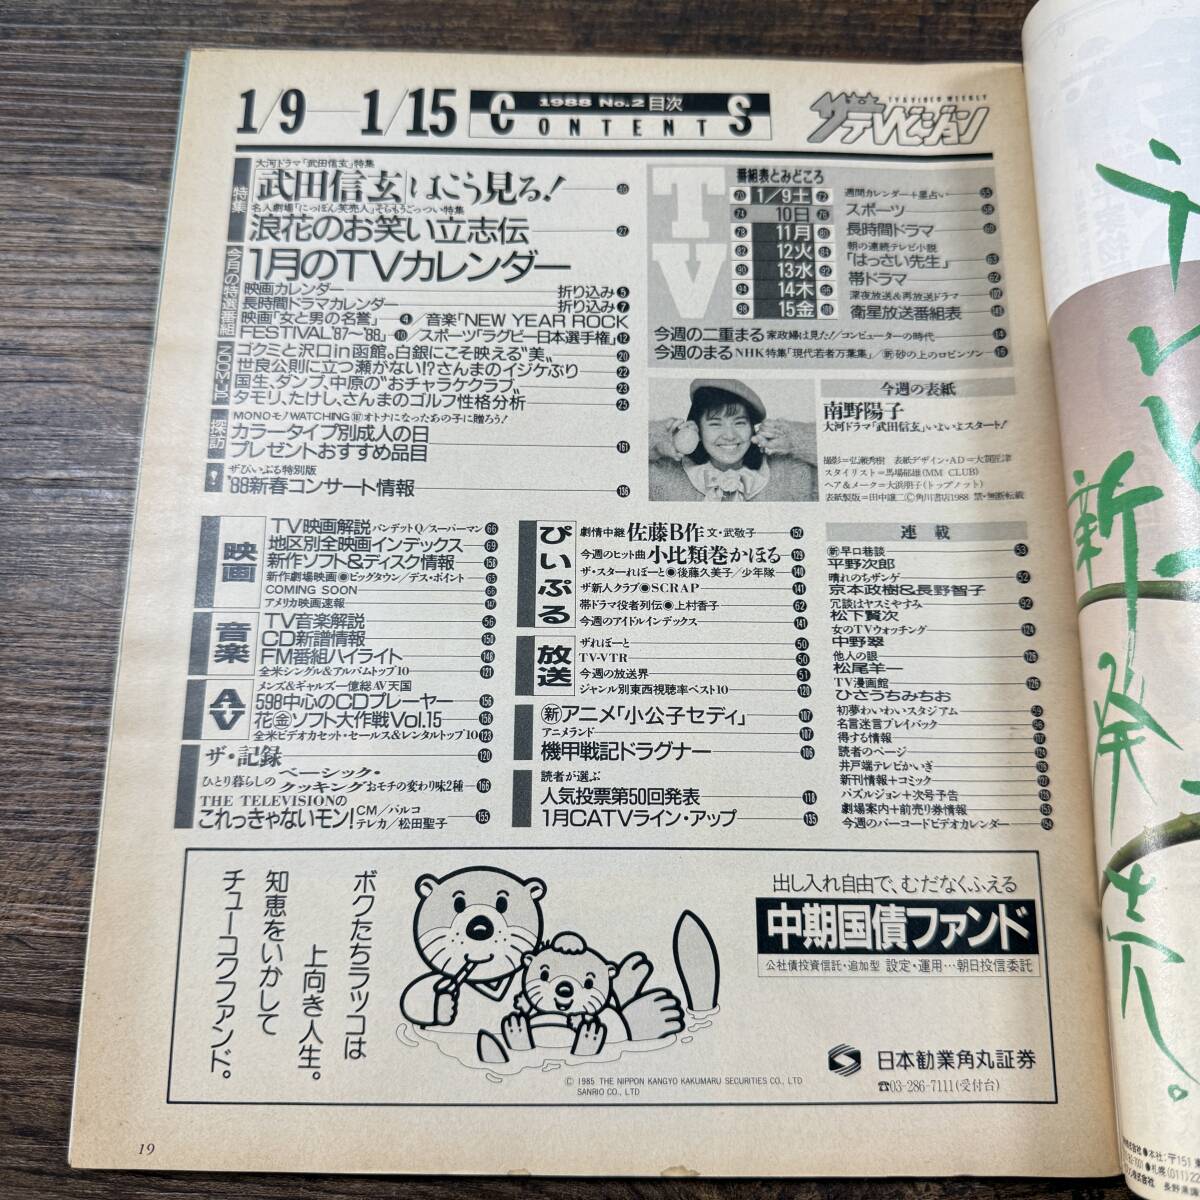 1/9—1/15
1988 No.2 目次
CONTENTS
TV & VIDEO WEEKLY
ザテレビジョン
特集
大河ドラマ「武田信玄」特集
「武田信玄」はこう見る! 40
名人劇場「にっぽん笑売人」そらもうごっつい特集
浪花のお笑い立志伝 27
今月の特選番組
1月のTVカレンダー
映画カレンダー 折り込み5
長時間ドラマカレンダー 折り込み7
映画「女と男の名誉」—4/音楽「NEW YEAR ROCK
FESTIVAL'87~'88」—10/スポーツ「ラグビー日本選手権」12
ZOOM UP
ゴクミと沢口in函館。白銀にこそ映える"美" 20
世良公則に立つ瀬がない!?さんまのイジケぶり 22
国生、ダンプ、中原の"おチャラケクラブ" 23
タモリ、たけし、さんまのゴルフ性格分析 25
探訪
MONOモノWATCHING 新 オトナになったあの子に贈ろう!
カラータイプ別成人の日
プレゼントおすすめ品目 161
!
ザぴいぷる特別版
'88新春コンサート情報 136
TV
番組表とみどころ
70 1/9土 72
74 10日 76
78 11月
82 12火 84
90 13水 92
94 14木 96
98 15金
週間カレンダー+星占い 55
スポーツ 58
長時間ドラマ 60
朝の連続テレビ小説
「はっさい先生」 63
帯ドラマ 62
深夜放送&再放送ドラマ 102
衛星放送番組表 141
今週の二重まる 家政婦は見た!/コンピューターの時代 14
今週のまる NHK特集「現代若者万葉集」/新・砂の上のロビンソン 16
今週の表紙
南野陽子
大河ドラマ「武田信玄」いよいよスタート!
撮影=弘瀬秀樹 表紙デザイン・AD=大賀匠津
スタイリスト=馬場郁雄(MM CLUB)
ヘア&メーク=大浜朋子(トップノット)
表紙製版=田中譲二 Ⓒ角川書店1988 禁・無断転載
映画
TV映画解説 バンデットQ/スーパーマン 66
地区別全映画インデックス 69
新作ソフト&ディスク情報 150
新作劇場映画●ビッグタウン/デス・ポイント 65
COMING SOON 66
アメリカ映画速報 147
音楽
TV音楽解説 56
CD新譜情報 158
FM番組ハイライト 146
全米シングル&アルバムトップ10 121
A・V
メンズ&ギャルズ一億総AV天国
598中心のCDプレーヤー 156
花金ソフト大作戦Vol.15 158
全米ビデオカセット・セールス&レンタルトップ10 123
ザ・記録 120
ひとり暮らしの ベーシック・クッキング おモチの変わり味2種 166
THE TELEVISIONの
これっきゃないモン! CM/パルコ テレカ/松田聖子 155
ぴいぷる
劇情中継 佐藤B作 文・武敬子 152
今週のヒット曲 小比類巻かほる 129
ザ・スターれぽーと●後藤久美子/少年隊 140
ザ新人クラブ●SCRAP 141
帯ドラマ役者列伝●上村香子 62
今週のアイドルインデックス 141
放送
ザれぽーと 50
TV-VTR 50
今週の放送界 51
ジャンル別東西視聴率ベスト10 120
新アニメ「小公子セディ」 107
アニメランド 107
機甲戦記ドラグナー 106
読者が選ぶ
人気投票第50回発表 118
1月CATVライン・アップ 135
連載
新 早口巷談 53
平野次郎
晴れのちザンゲ 52
京本政樹&長野智子
冗談はヤスミやすみ 92
松下賢次
女のTVウォッチング 124
中野翠
他人の眼 125
松尾羊一
TV漫画館 126
ひさうちみちお
初夢わいわいスタジアム 59
名言迷言プレイバック
得する情報 117
読者のページ 124
井戸端テレビかいぎ
新刊情報+コミック 127
パズルジョン+次号予告
劇場案内+前売り券情報
今週のバーコードビデオカレンダー
ボクたちラッコは
上向き人生。
知恵をいかして
チューコクファンド。
出し入れ自由で、むだなくふえる
中期国債ファンド
公社債投資信託・追加型 設定・運用…朝日投信委託
日本勧業角丸証券
☎03-286-7111(受付台)
© 1985 THE NIPPON KANGYO KAKUMARU SECURITIES CO., LTD
SANRIO CO., LTD
19
新発
介。